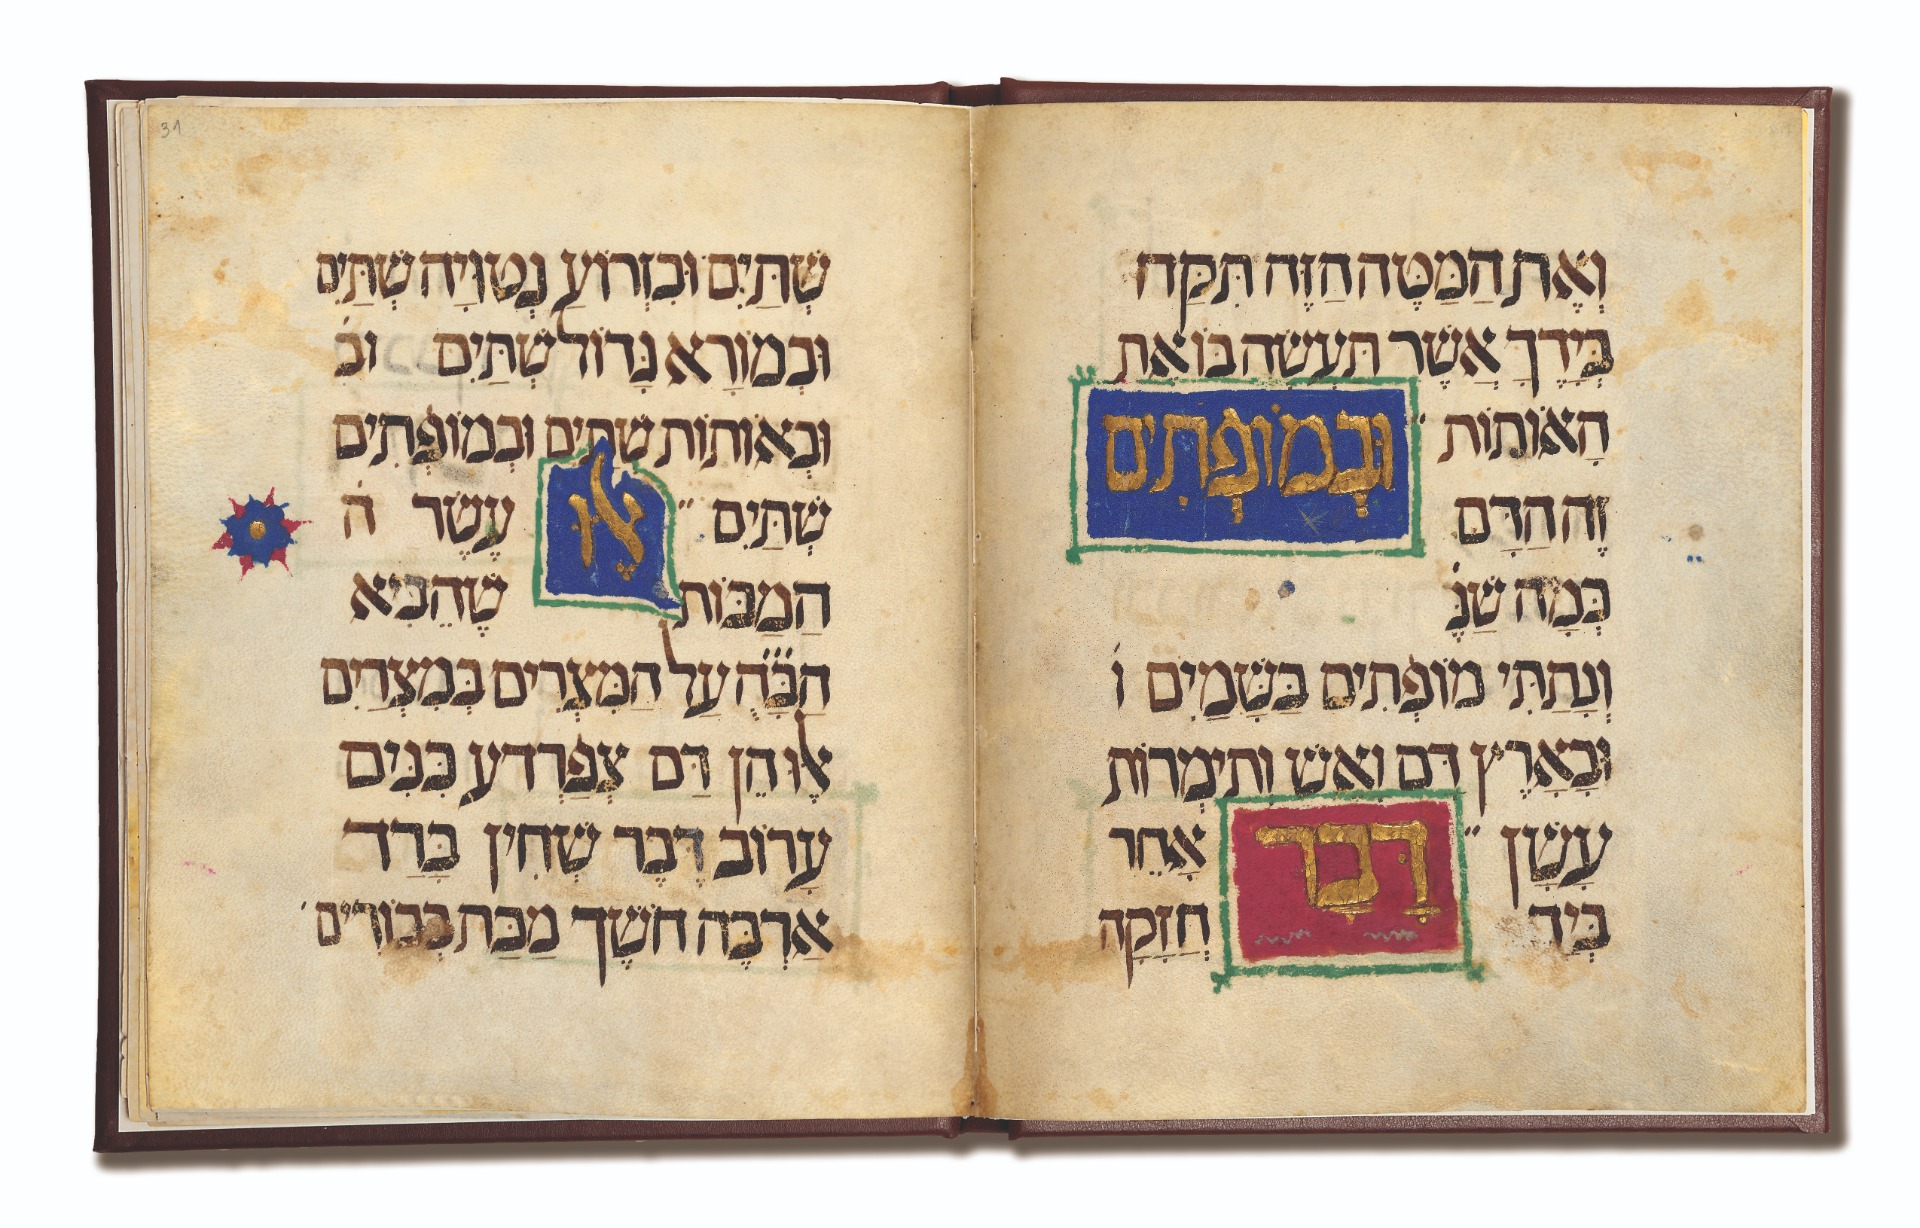 וְאֶת הַמַּטֶּה הַזֶּה תִּקַּח
בְּיָדֶךָ אֲשֶׁר תַּעֲשֶׂה בּוֹ אֶת
הָאוֹתוֹת וּבְמוֹפְתִים
זֶה הַדָּם
כְּמָה שֶׁנֶּ
וְנָתַתִּי מוֹפְתִים בַּשָּׁמַיִם וֹ
וּבָאָרֶץ דָּם וָאֵשׁ וְתִימְרוֹת
עָשָׁן דָּבָר אַחֵר
בְּיָד חֲזָקָה
שְׁתַּיִם וּבִזְרוֹעַ נְטוּיָה שְׁתַּיִם
וּבְמוֹרָא גָּדוֹל שְׁתַּיִם וּבְ
וּבְאוֹתוֹת שְׁתַּיִם וּבְמוֹפְתִים
שְׁתַּיִם אֵלוּ עֶשֶׂר הֹ
הַמַּכּוֹת שֶׁהֵבִיא
הַבָּ״ה עַל הַמִּצְרִים בְּמִצְרַיִם
אֵלוּ הֵן דַּם צְפַרְדֵּעַ כִּנִּים
עָרוֹב דֶּבֶר שְׁחִין בָּרַד
אַרְבֶּה חֹשֶׁךְ מַכַּת בְּכוֹרִים
31